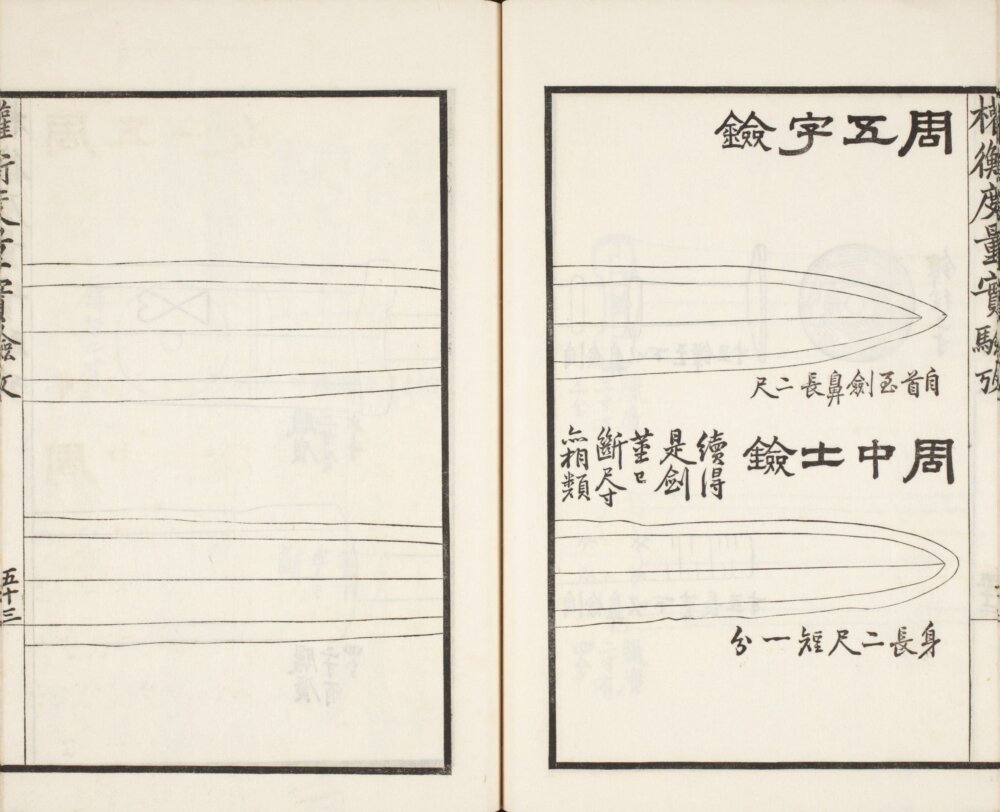 權衡度量實驗攷
周五字鐱
自首至劍鼻長二尺
周中士鐱
續得
是劍
莖已
斷尺寸
亦相類
身長二尺短一分
權衡度量實驗攷
五十三